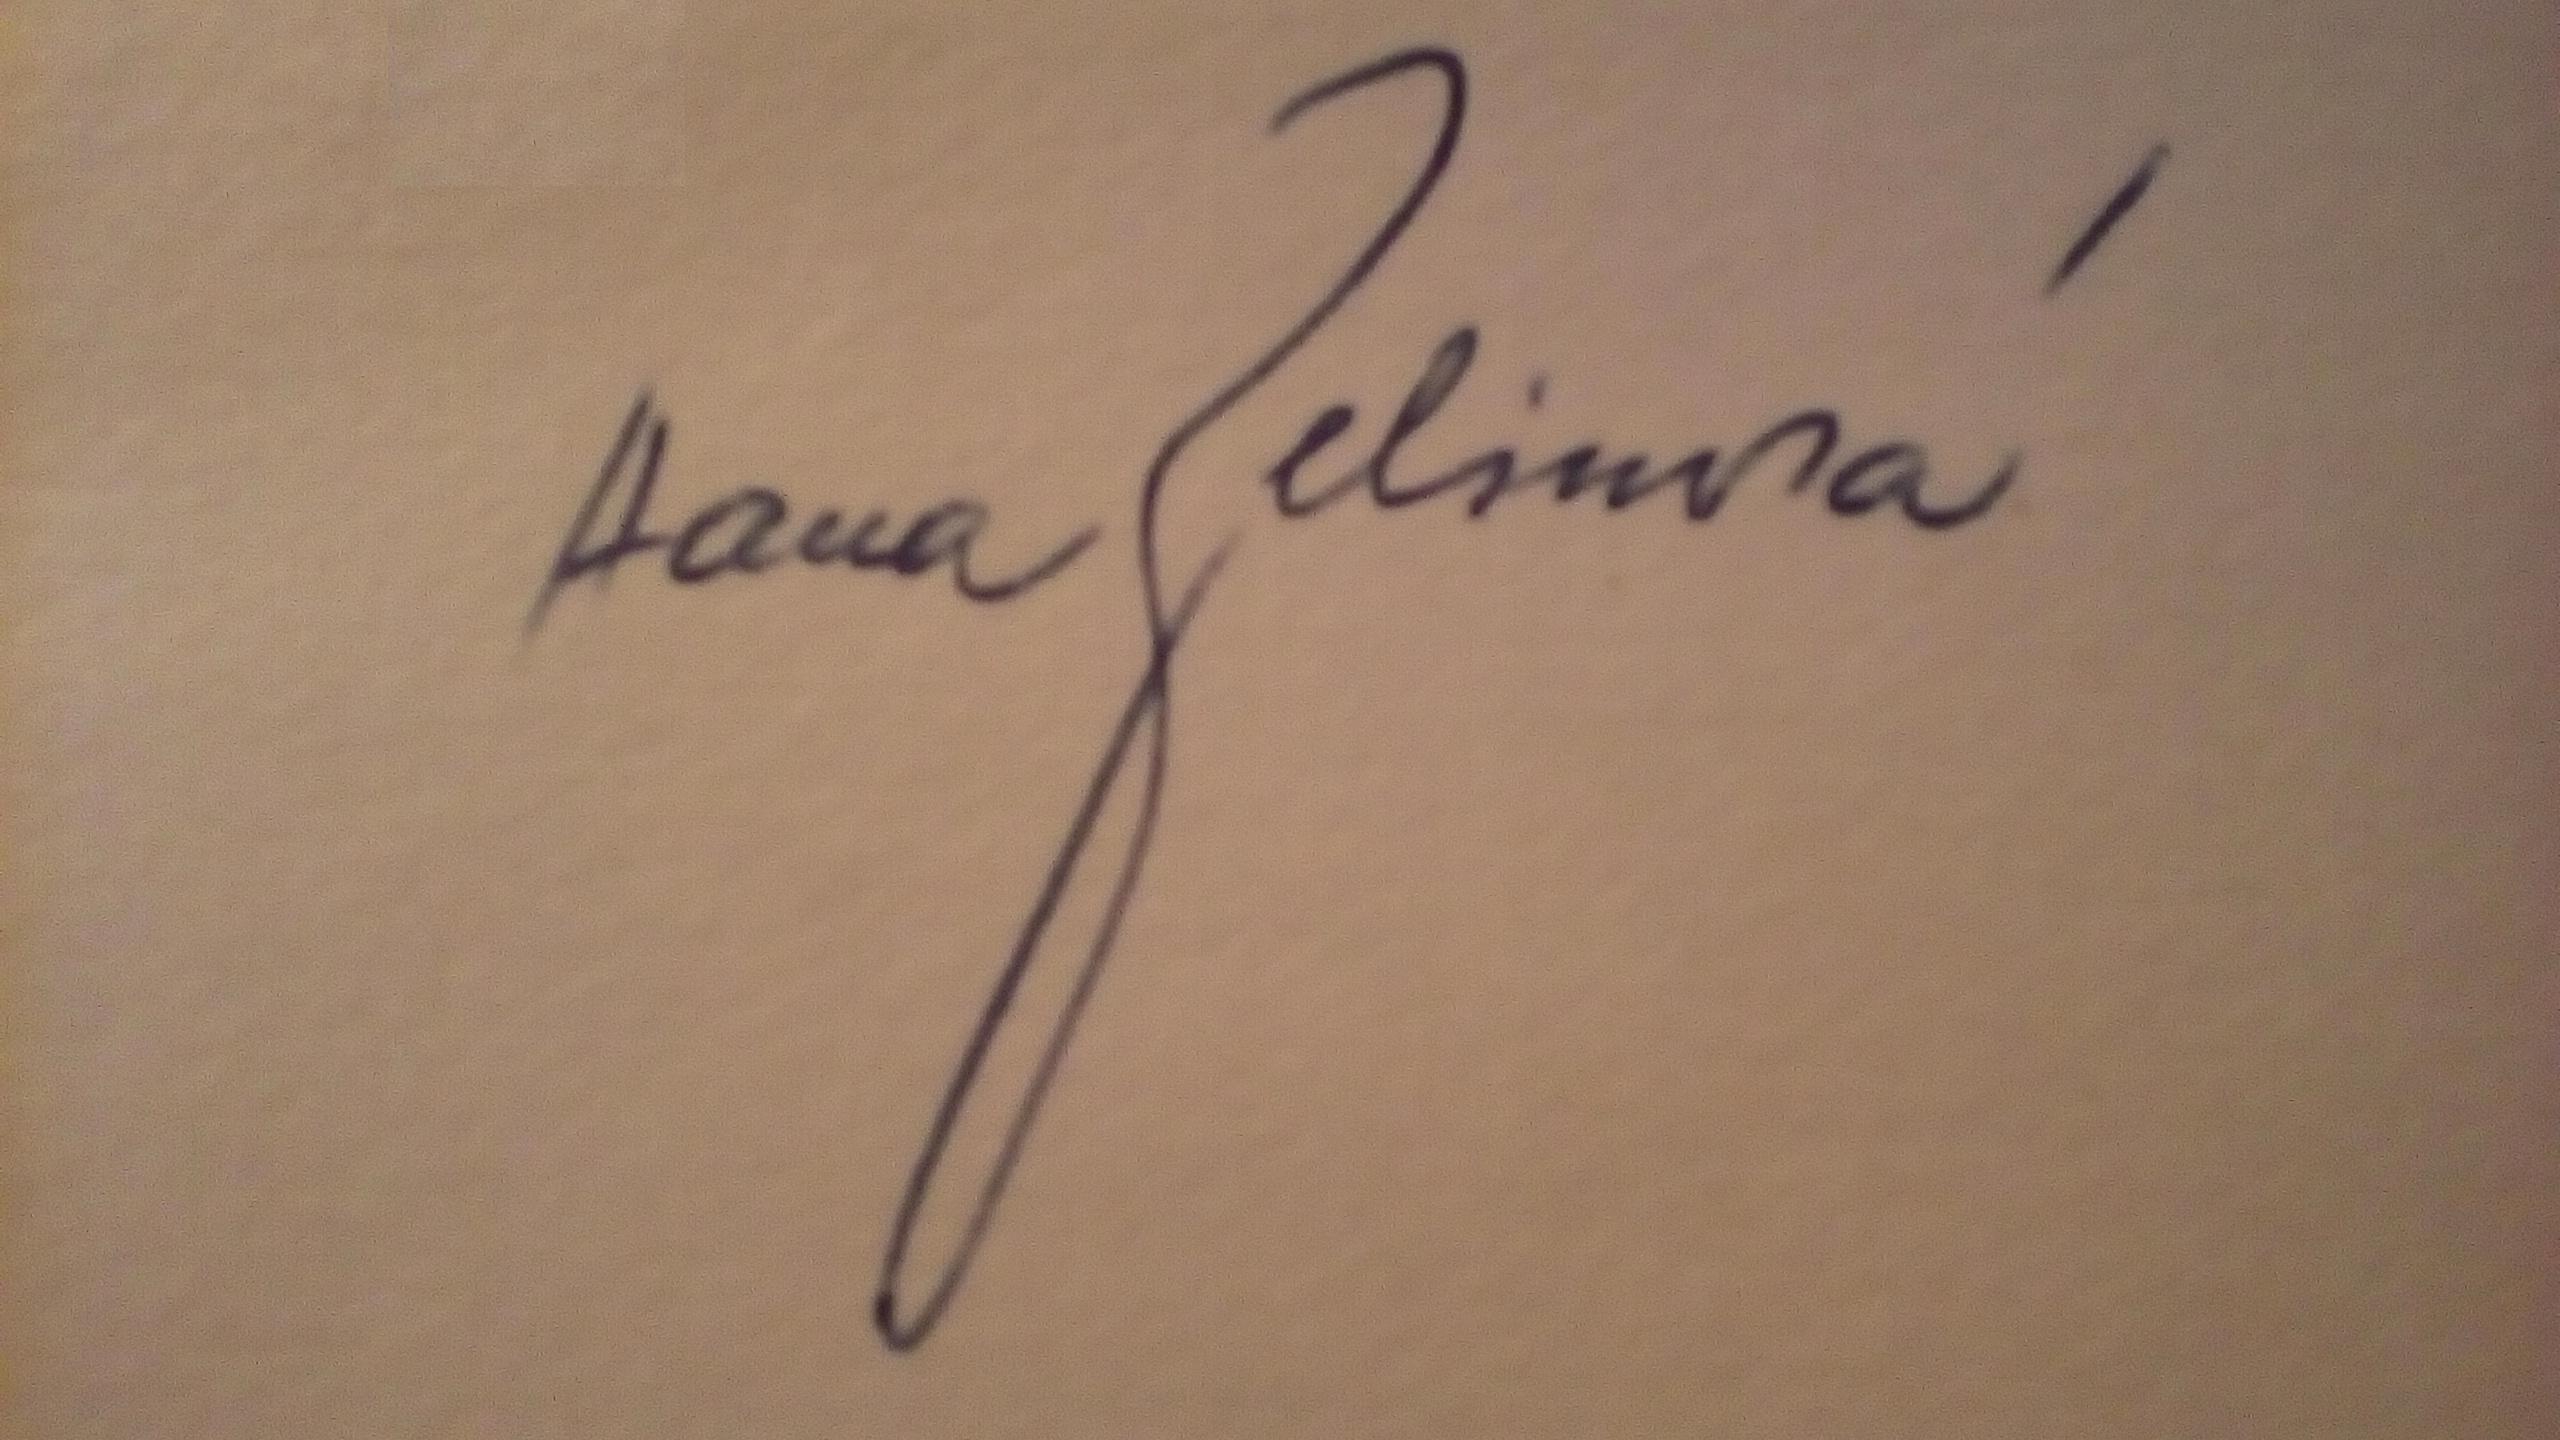 Hana Zelinová